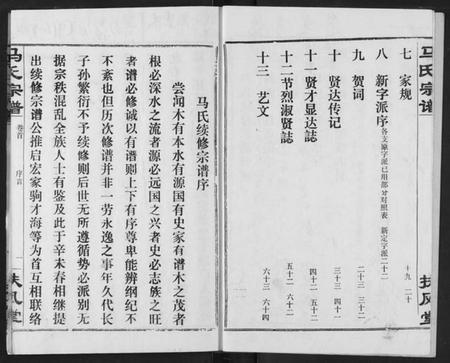 马氏宗谱
七 家规 十九 二十
八 新字派序 各支原字派已用部分对照表 新定字派二十二
九 贺词 二十三 三十二
十 贤达传记 三十三 四十一
十一 贤才显达誌 四十二 五十一
十二 节烈淑贤誌 五十二 六十二
十三 艺文 六十三 六十四
扶风堂
马氏续修宗谱序
尝闻木有本水有源国有史家有谱木之茂者
根必深水之流者源必远国之兴者史必志族之旺
者谱必修诚以有谱则上下有序尊卑能辨纲纪不
不紊也但历次修谱并非一劳永逸之事年久代长
子孙繁衍不予续修则后世无所遵循势必派别无
据宗秩混乱全族人士有鉴及此于辛未春相继提
出续修宗谱公推启宏家驹才海等为首互相联络
马氏宗谱
卷首 序言 一
扶风堂